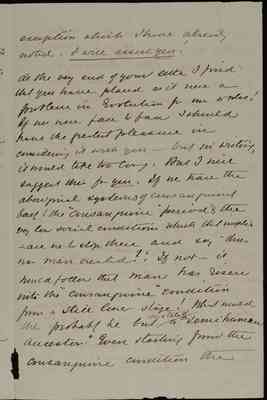 exception which I have already
noted. I will assent you!
At the very end of your letter I find
that you have placed as it were a
problem in Evolution for me to solve!
If we were face to face I should
have the greatest pleasure in
considering it with you — but in writing
it would take too long. But I will
suggest this for you. If we have the
aboriginal systems of consanguineal
back to the consanguine period & the
very low social conditions which that implies
— are we to stop there and say "then
was man created"? If not — it
must follow that man has risen
into the "Consanguine" condition
from a still lower stage! What would
that probably be but a state to "semihuman
ancestor." Even starting from the
consanguine condition the